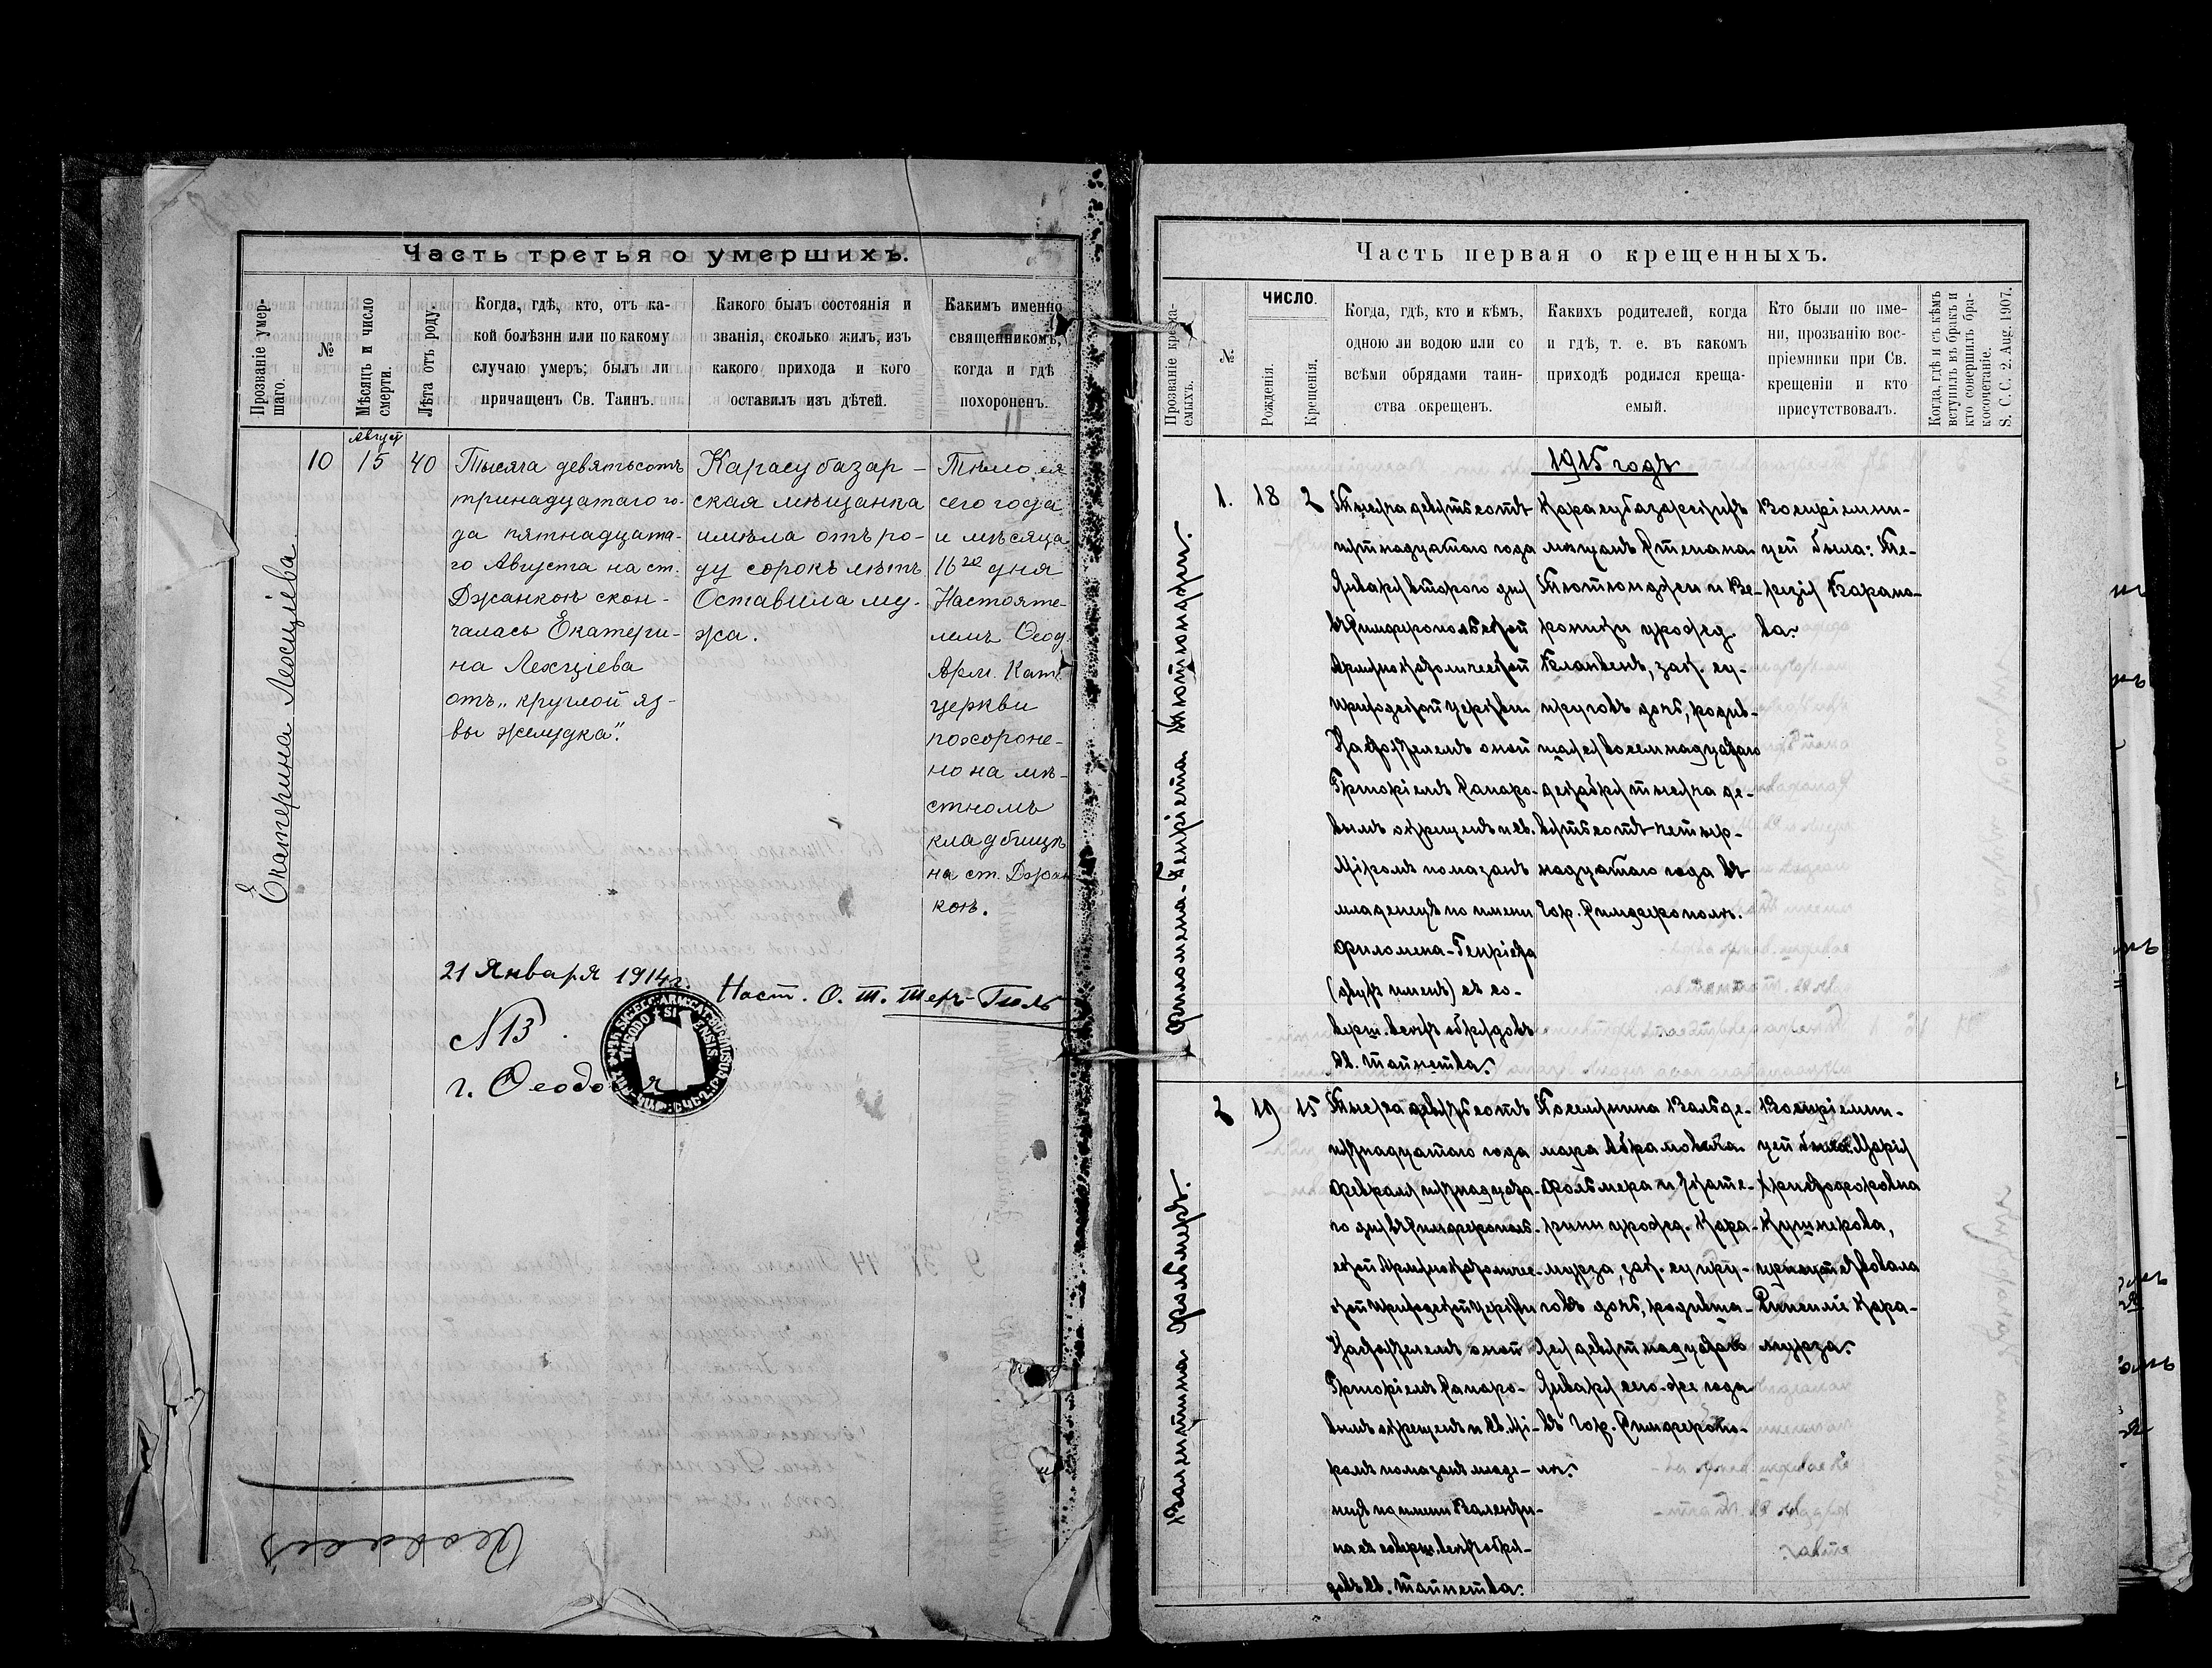 Часть третья о умершихъ.
Прозваніе умер-
шаго.
№
Мѣсяцъ и число
смерти.
Лѣта отъ роду.
Когда, гдѣ, кто, отъ ка-
кой болѣзни или по какому
случаю умеръ; былъ ли
причащенъ Св. Таинъ.
Какого былъ состоянія и
званія, сколько жилъ, изъ
какого прихода и кого
оставилъ изъ дѣтей.
Какимъ именно
священникомъ,
когда и гдѣ
похороненъ.
Екатерина Лехціева.
10
Август
15
40
Тысяча девятьсотъ
тринадцатаго го-
да пятнадцата-
го Августа на ст.
Джанкой скон-
чалась Екатери-
на Лехціева
отъ „круглой яз-
вы желудка".
Карасубазар-
ская мѣщанка
имѣла отъ ро-
ду сорокъ лѣтъ
Оставила му-
жа.
Тѣло ея
сего года
и мѣсяца
16го дня
Настояте-
лемъ Ѳеод.
Арм. Кат.
церкви
похороне-
но на мѣ-
стномъ
кладбищѣ
на ст. Джан
кой.
21 Января 1914 г.
Наст. О. Т. Теръ-Гюль
N 13
г. Ѳеодо
THEODO SI ENSIS
Часть первая о крещенныхъ.
Прозваніе креща-
емыхъ.
№
ЧИСЛО.
Рожденія.
Крещенія.
Когда, гдѣ, кто и кѣмъ,
одною ли водою или со
всѣми обрядами таин-
ства окрещенъ.
Какихъ родителей, когда
и гдѣ, т. е. въ какомъ
приходѣ родился креща-
емый.
Кто были по име-
ни, прозванію вос-
пріемники при Св.
крещеніи и кто
присутствовалъ.
Когда, гдѣ и съ кѣмъ
вступилъ въ бракъ и
кто совершилъ бра-
косочетаніе.
S. C. C. 2. Aug. 1907.
1915 годъ
Филомена-Генріета Тютюнджи.
1.
18
2
Тысяча девятьсотъ
пятнадцатаго года
Января второго дня
въ Симферопольской
Армянокатолической
приходской церкви
Настоятелемъ оной
Григоріемъ Сапаро-
вымъ окрещенъ и св.
Міромъ помазанъ
младенецъ по имени
Филомена-Генріета
(двухъ именъ) съ со-
верш. всѣхъ обрядовъ
св. таинства.
Карасубазарскихъ
мѣщанъ Степана
Тютюнджи и Ве-
роники урожд.
зак. су-
пруговъ дочь, родив-
шаяся восемнадцатаго
декабря тысяча де-
вятьсотъ четыр-
надцатаго года въ
гор. Симферополѣ.
Воспріемни-
цей была: Те-
резія Барано-
ва.
Валентина Фольмеръ.
2
19
15
Тысяча девятьсотъ
пятнадцатаго года
Февраля пятнадцата-
го дня въ Симферополь-
ской Армянокатоличес-
кой приходской церкви
Настоятелемъ оной
Григоріемъ Сапаро-
вымъ окрещенъ и св. Мі-
ромъ помазанъ младе-
нецъ по имени Валенти-
на съ соверш. всѣхъ обря-
довъ св. таинства.
Поселянина Вальде-
мара Абрамовича
Фольмера и Екате-
рины урожд. Кара-
мурза, зак. супру-
говъ дочь, родивша-
яся девятнадцатаго
Января сего-же года
въ гор. Симферопо-
лѣ.
Воспріемни-
цей была: Марія
Христофоровна
Кушнерова,
присутствовала
Кара-
мурза.